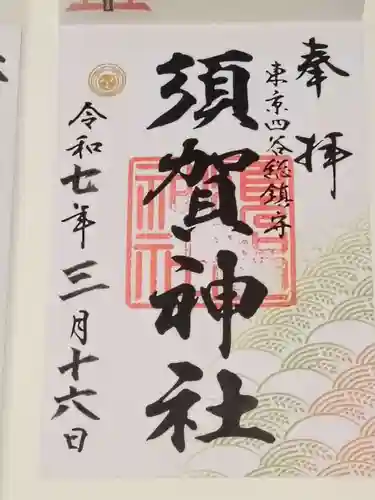 奉拝
東京四谷総鎮守
須賀神社
令和七年三月十六日